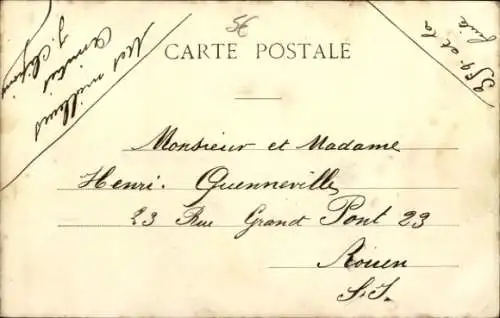 5€
CARTE POSTALE
Mes meilleurs
Amitiés
J.
359 et la
suite
Monsieur et Madame
Henri. Quenneville
23 Rue Grand Pont 23
Rouen
S.I.